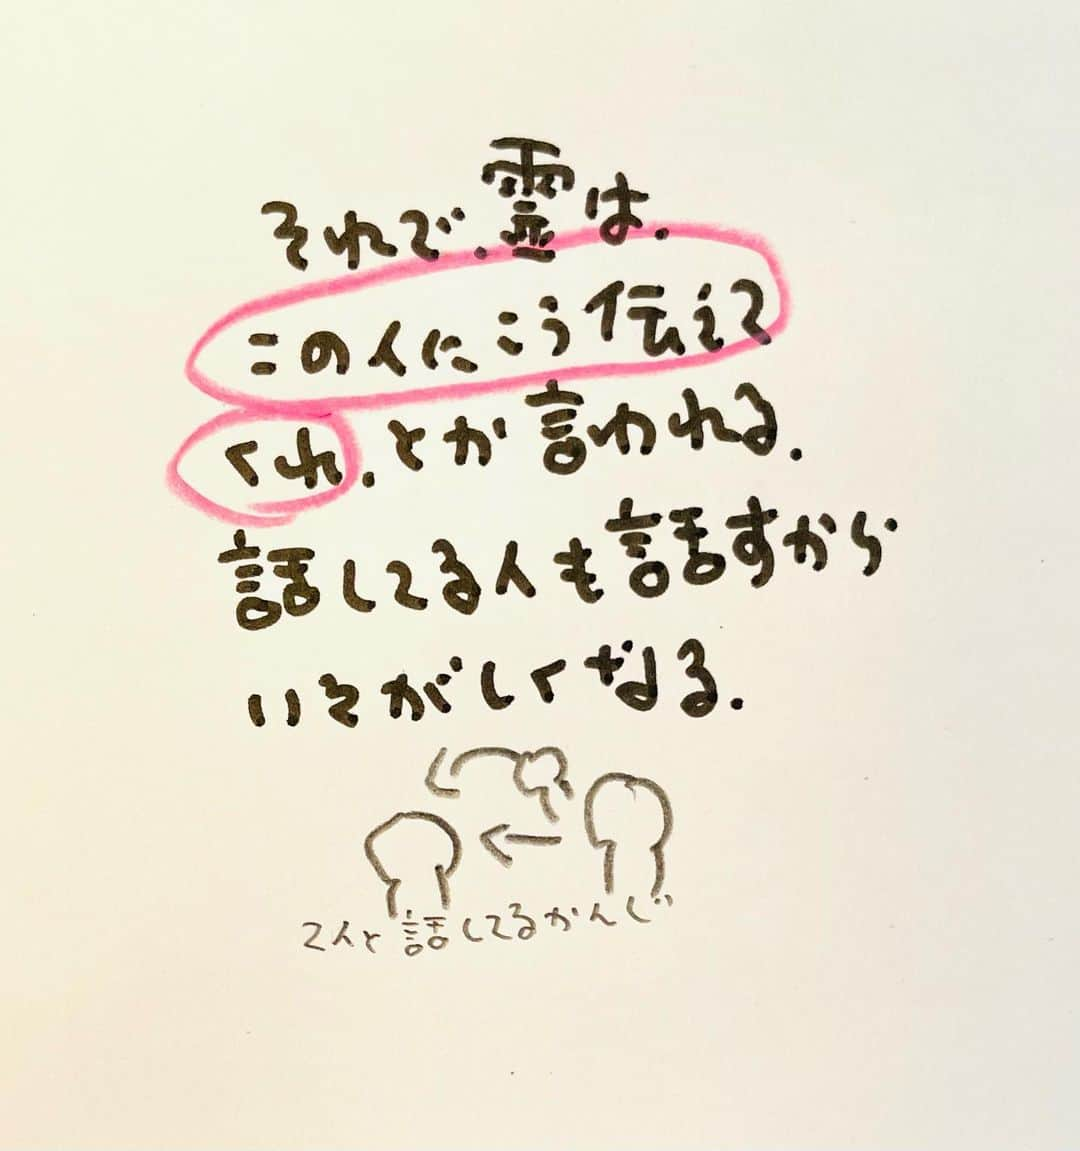 それで.霊は.
この人にこう伝えて
くれ.とか言われる.
話してる人も話すから
いそがしくなる.
2人と話してるかんじ